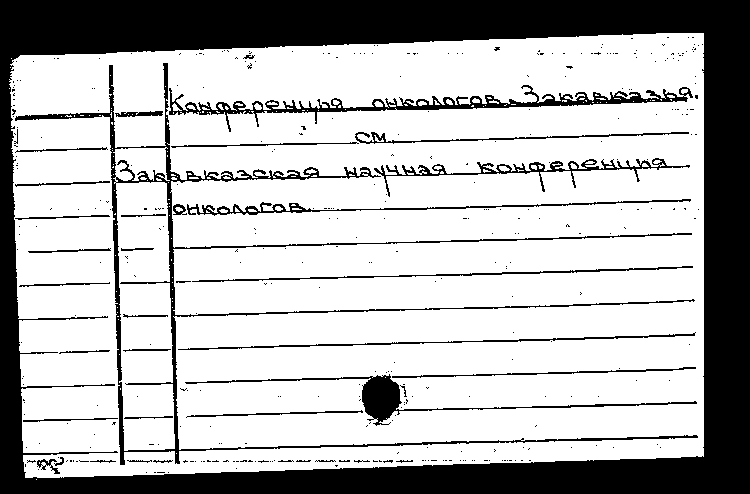 Конференция онкологов Закавказья.
см.
Закавказская научная конференция
онкологов.